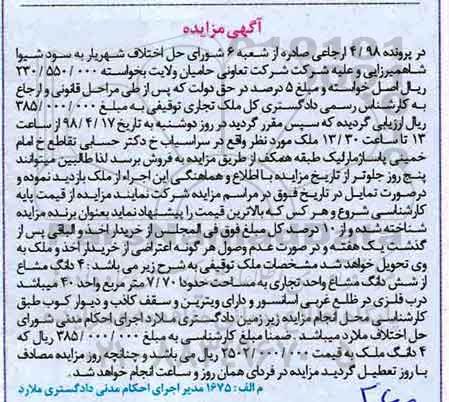 آگهی مزایده
در پرونده ۴/۹۸ ارجاعی صادره از شعبه ۶ شورای حل اختلاف شهریار به سود شیوا
شاهمیرزایی و علیه شرکت شرکت تعاونی حامیان ولایت بخواسته ۲۳۰/۵۵۰/۰۰۰
ریال اصل خواسته و مبلغ ۵ درصد در حق دولت که پس از طی مراحل قانونی و ارجاع
به کارشناس رسمی دادگستری کل ملک تجاری توقیفی به مبلغ ۳۸۵/۰۰۰/۰۰۰
ریال ارزیابی گردیده که سپس مقرر گردید در روز دوشنبه به تاریخ ۹۸/۴/۱۷ از ساعت
۱۳ تا ساعت ۱۳/۳۰ ملک مورد نظر واقع در سرآسیاب خ دکتر حسابی تقاطع خ امام
خمینی پاساژمارلیک طبقه همکف از طریق مزایده به فروش برسد لذا طالبین میتوانند
پنج روز جلوتر از تاریخ مزایده با اطلاع و هماهنگی این اجراء از ملک بازدید نموده و
درصورت تمایل در تاریخ فوق در مراسم مزایده شرکت نمایند مزایده از قیمت پایه
کارشناسی شروع و هر کس که بالاترین قیمت را پیشنهاد نماید بعنوان برنده مزایده
شناخته شده و از ۱۰ درصد کل مبلغ فوق فی المجلس از خریدار اخذ و الباقی پس از
گذشت یک هفته و در صورت عدم وصول هر گونه اعتراضی از خریدار اخذ و ملک به
وی تحویل خواهد شد مشخصات ملک توقیفی به شرح زیر می باشد: ۴ دانگ مشاع
از شش دانگ مشاع واحد تجاری به مساحت حدودا ۷/۷۰ متر مربع واحد ۴۰ میباشد
درب فلزی در ظلع غربی آسانسور و دارای ویترین و سقف کاذب و دیوار کوب طبق
کارشناسی محل انجام مزایده زیر زمین دادگستری ملارد اجرای احکام مدنی شورای
حل اختلاف ملارد میباشد. ضمنا مبلغ کارشناسی به مبلغ ۳۸۵/۰۰۰/۰۰۰ ریال که
۴ دانگ ملک به قیمت ریال می باشد و چنانچه روز مزایده مصادف
با روز تعطیل گردید مزایده در فردای همان روز و ساعت انجام خواهد شد.
م الف: ۱۶۷۵ مدیر اجرای احکام مدنی دادگستری ملارد